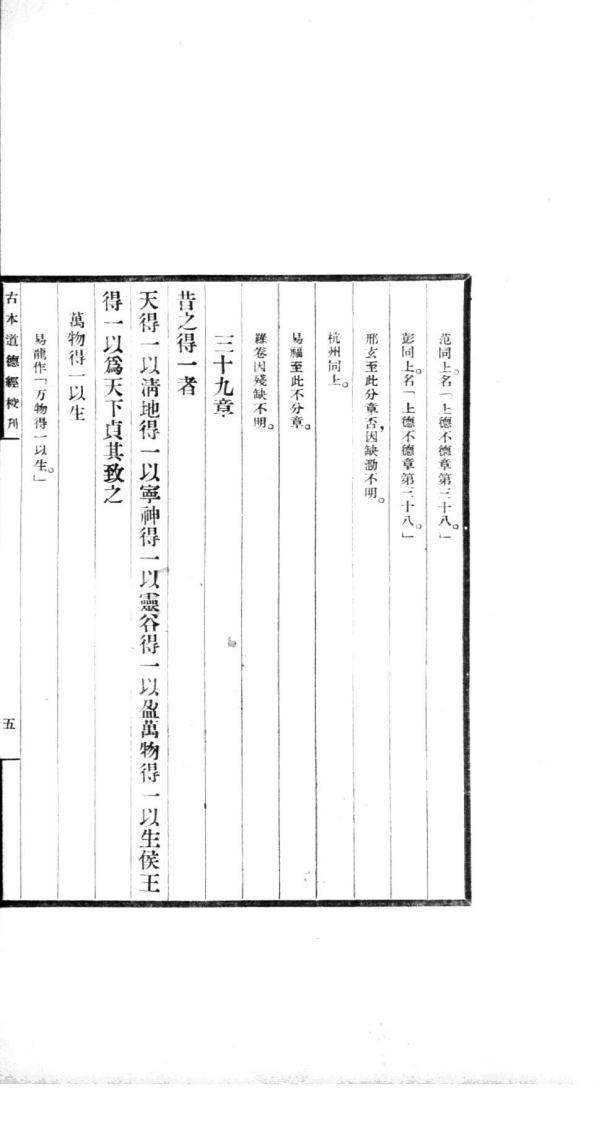 范同上。名「上德不德章第三十八。」
彭同上。名「上德不德章第三十八。」
邢玄至此分章否，因缺泐不明。
杭州同上。
易福至此不分章。
羅卷因殘缺不明。
三十九章
昔之得一者
天得一以淸地得一以寧神得一以靈谷得一以盈萬物得一以生侯王
得一以爲天下貞其致之
萬物得一以生
易龍作「万物得一以生。」
古本道德經校刊
五